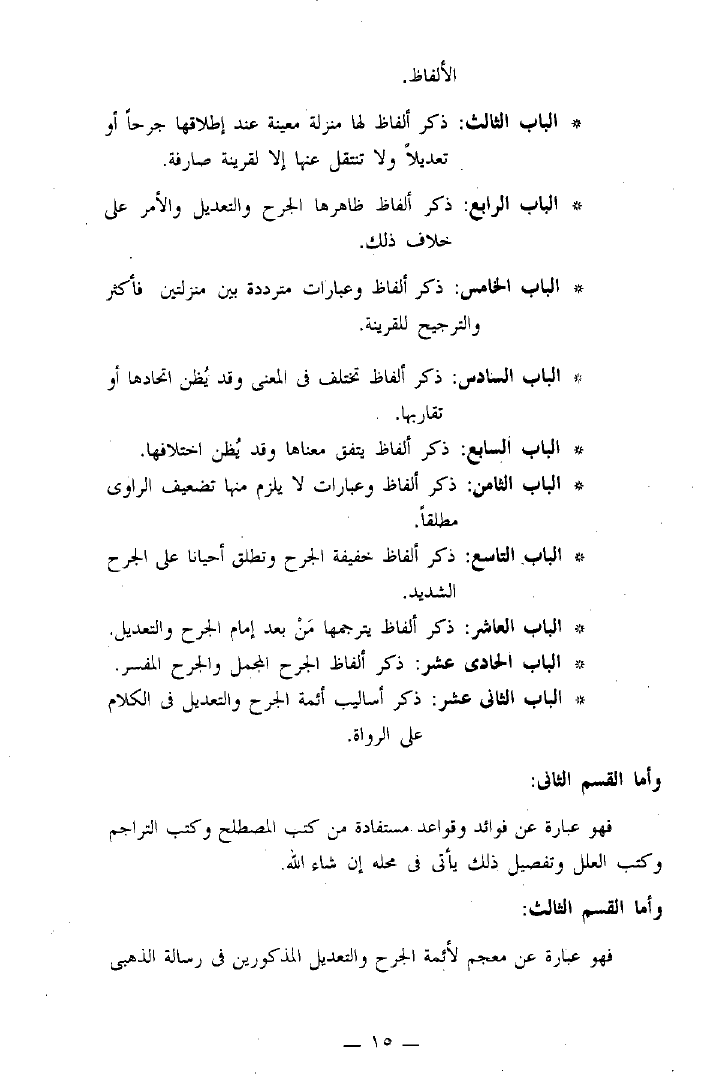 الألفاظ.
* الباب الثالث: ذكر ألفاظ لها منزلة معينة عند إطلاقها جرحاً أو
تعديلاً ولا تنتقل عنها إلا لقرينة صارفة.
* الباب الرابع: ذكر ألفاظ ظاهرها الجرح والتعديل والأمر على
خلاف ذلك.
* الباب الخامس: ذكر ألفاظ وعبارات مترددة بين منزلتين فأكثر
والترجيح للقرينة.
* الباب السادس: ذكر ألفاظ تختلف فى المعنى وقد يُظن اتحادها أو
تقاربها.
* الباب السابع: ذكر ألفاظ يتفق معناها وقد يُظن اختلافها.
* الباب الثامن: ذكر ألفاظ وعبارات لا يلزم منها تضعيف الراوى
مطلقاً.
* الباب التاسع: ذكر ألفاظ خفيفة الجرح وتطلق أحيانا على الجرح
الشديد.
* الباب العاشر: ذكر ألفاظ يترجمها مَنْ بعد إمام الجرح والتعديل.
* الباب الحادى عشر: ذكر ألفاظ الجرح المجمل والجرح المفسر.
* الباب الثانى عشر: ذكر أساليب أئمة الجرح والتعديل فى الكلام
على الرواة.
وأما القسم الثانى:
فهو عبارة عن فوائد وقواعد مستفادة من كتب المصطلح وكتب التراجم
وكتب العلل وتفصيل ذلك يأتى فى محله إن شاء الله.
وأما القسم الثالث:
فهو عبارة عن معجم لأئمة الجرح والتعديل المذكورين فى رسالة الذهبى
— ١٥ —